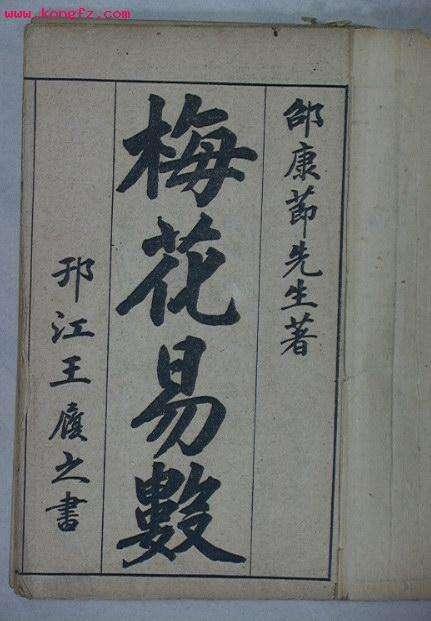 www.kongfz.com
邵康節先生著
梅花易數
邗江王廎之書